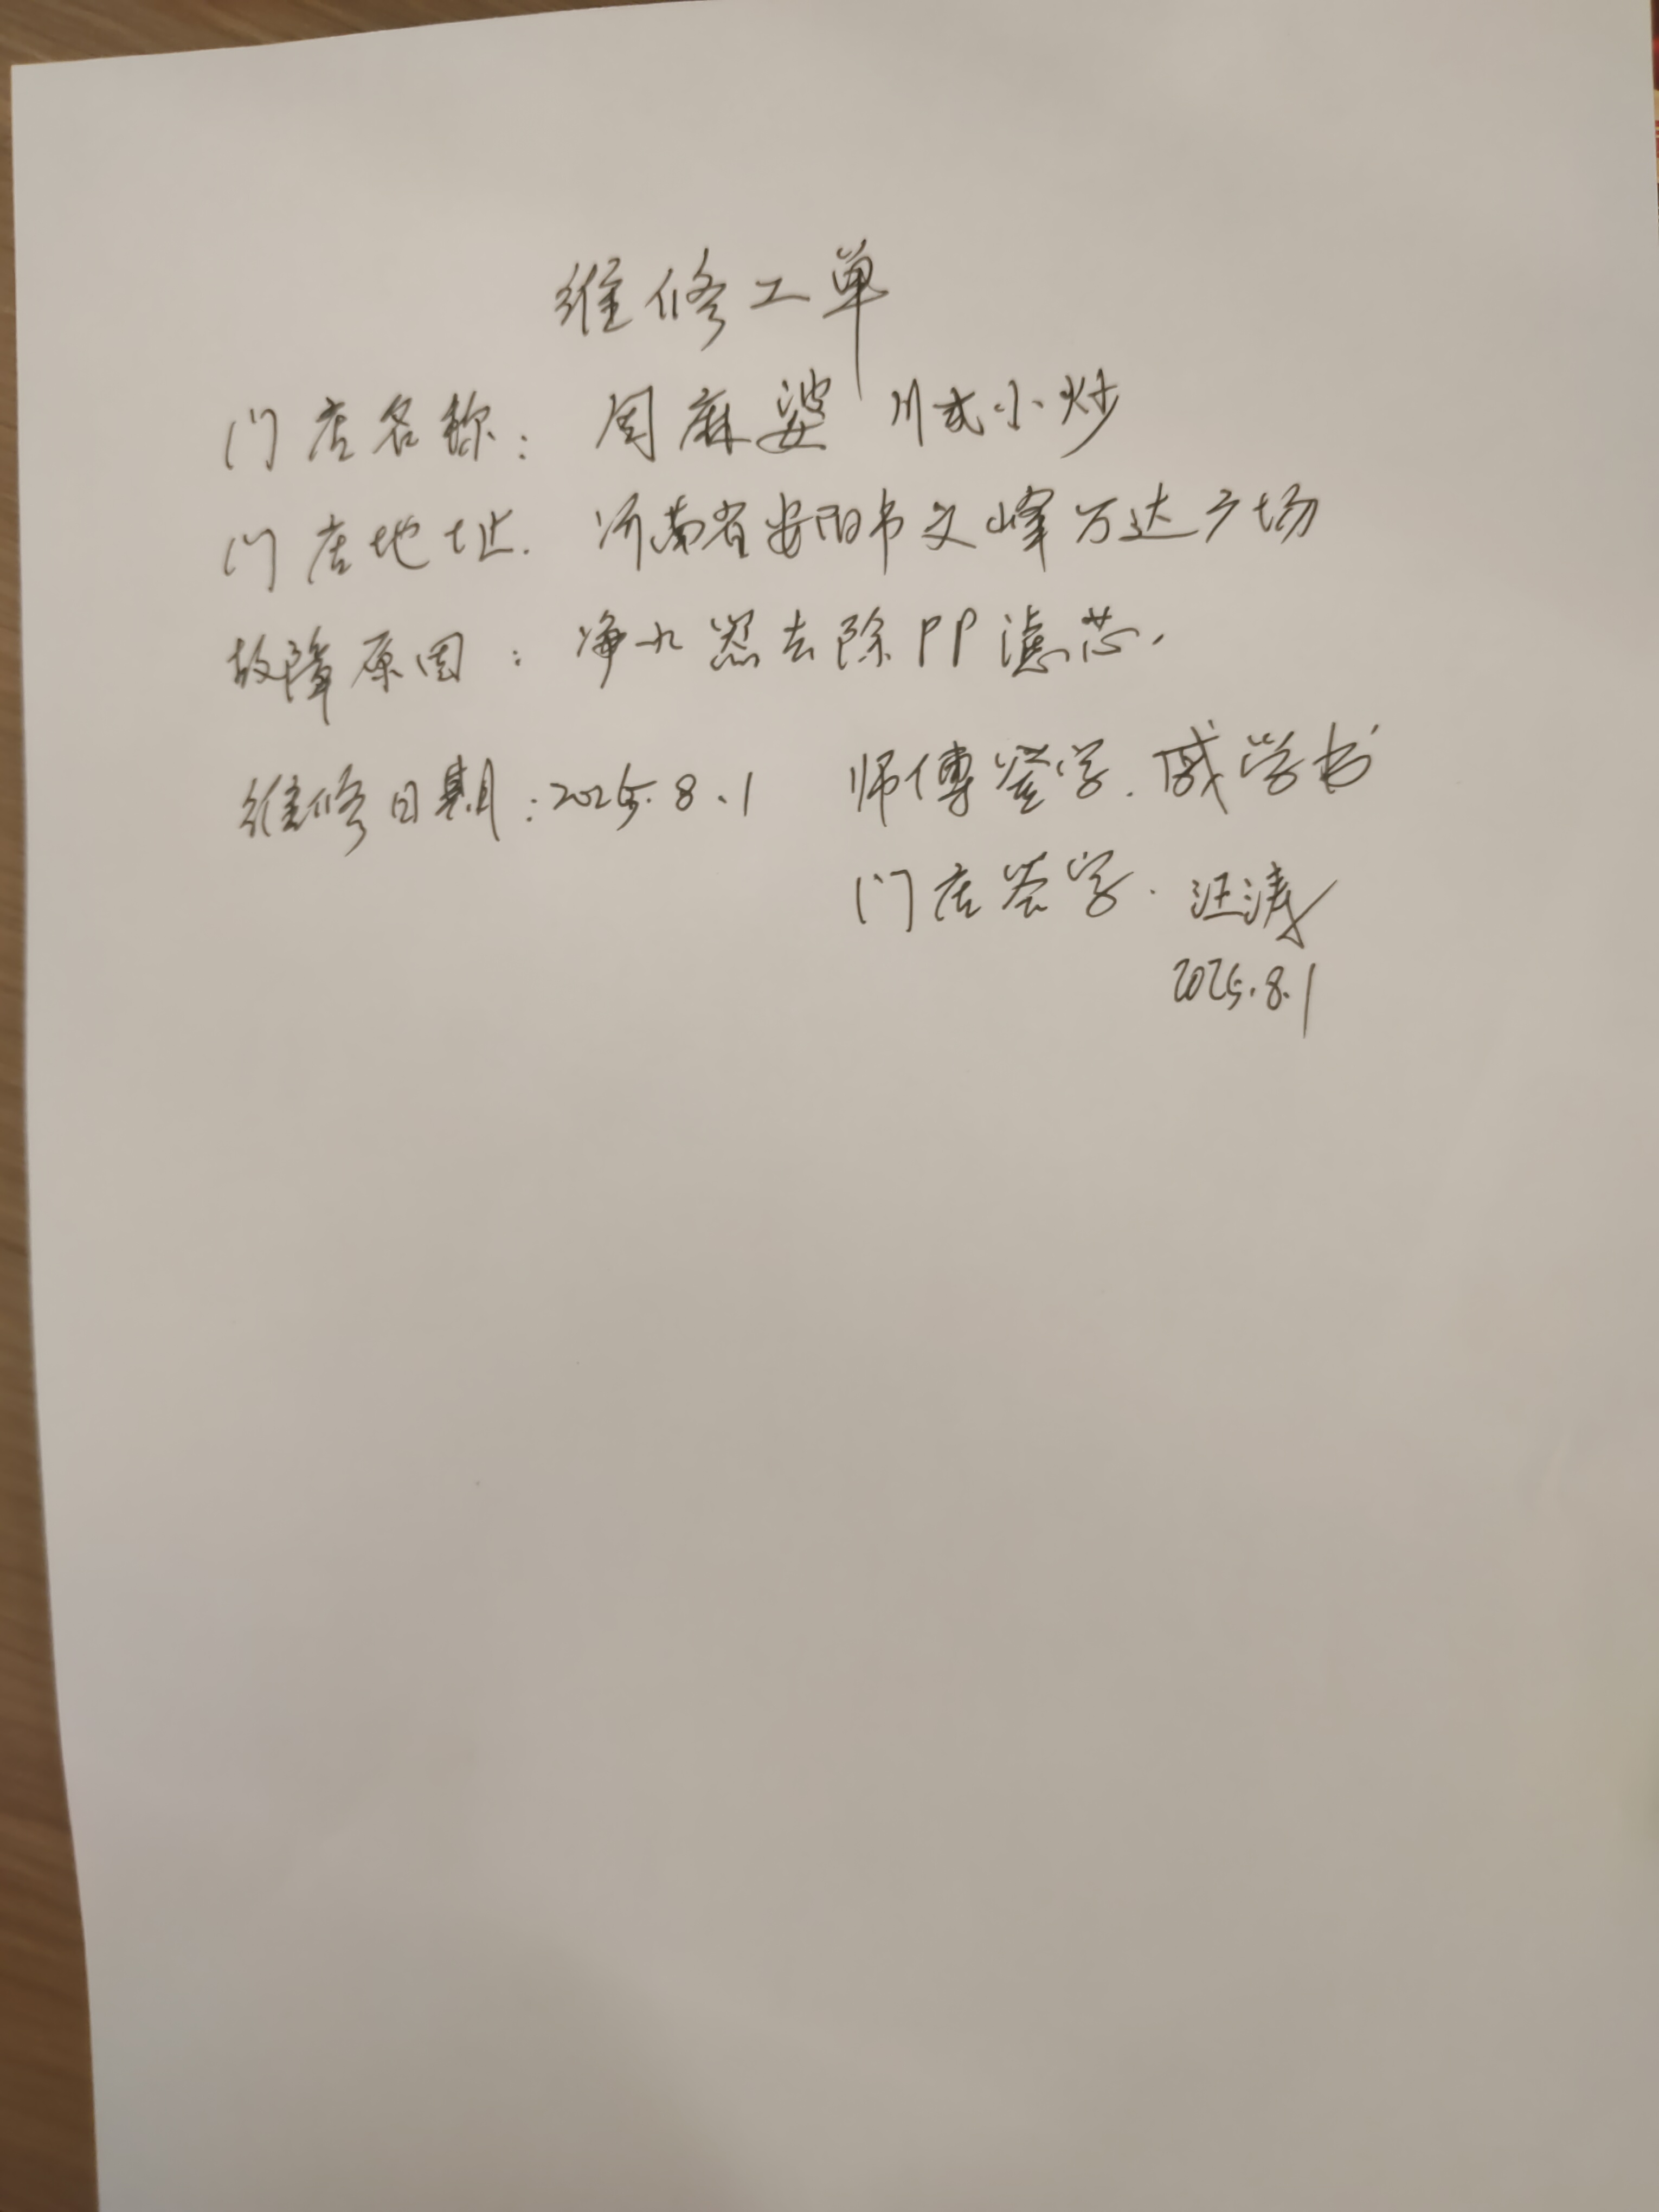 维修工单
门店名称：周麻婆 川式小炒
门店地址. 河南省安阳市文峰万达广场
故障原因：净水器去除PP滤芯.
维修日期：2025.8.1 师傅签字. 戚学书
门店签字. 汪涛
2025.8.1